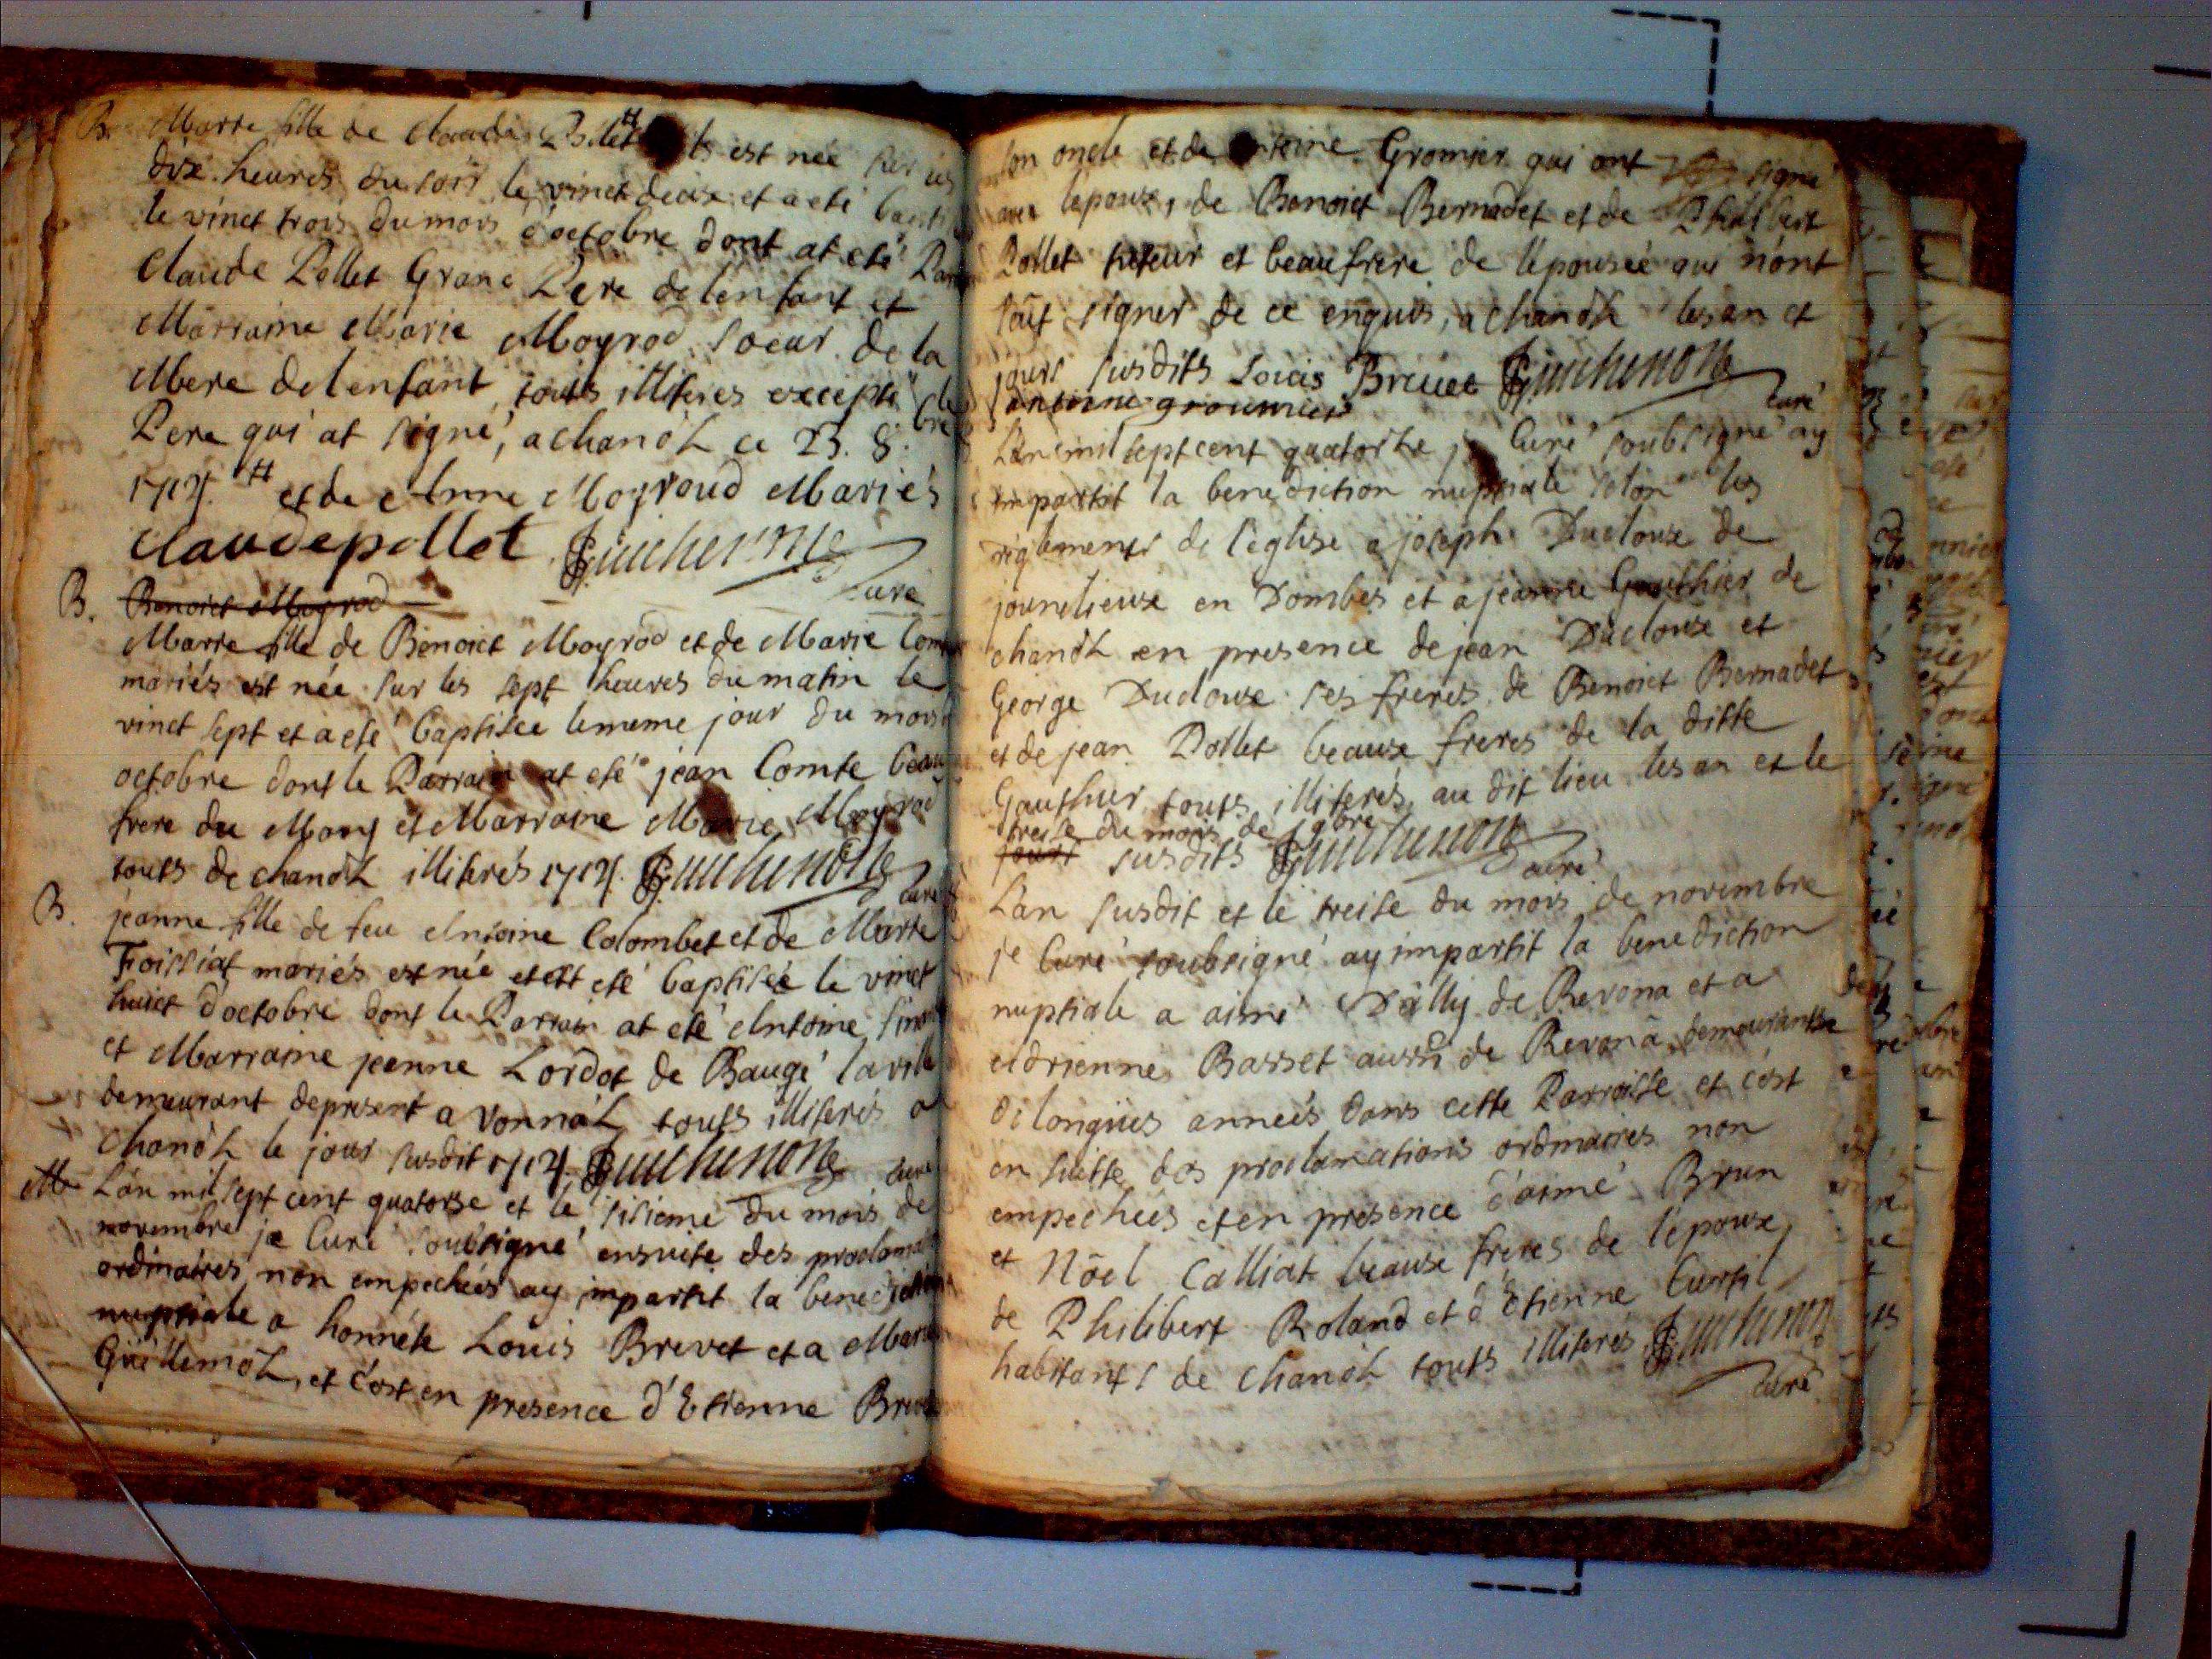 B. Marie fille de Claude Pollet # est née sur les
dix heures du soir le vinct deux et a eté
le vinct trois du mois d'octobre dont at eté
Claude Pollet Grand Pere de lenfant et
Marraine Marie Moyrod soeur de la
Mere de lenfant touts illiteres excepté le
Pere qui at signé, a chanoz ce 23. 8.bre
1714. # et de Anne Moyroud Mariés
claudepollet Guichenon
curé
B. Benoict Moyrod
Marie fille de Benoict Moyrod et de Marie
mariés est née sur les sept heures du matin le
vinct sept et a eté baptisée le meme jour du mois
octobre dont le Parrain at eté jean Comte beau
frere du Mary et Marraine Marie Moyrod
touts de chanoz illiterés 1714. Guichenon curé
B. jeanne fille de feu Antoine Colombet et de Marie
Foissiat mariés est née et at eté baptisée le vinct
huict d'octobre dont le Parrain at eté Antoine
et Marraine jeanne Lordot de Baugé la ville
demeurant depresent a vonnaz touts illiterés a
chanoz le jour susdit 1714. Guichenon curé
M L'an mil sept cent quatorse et le sisieme du mois de
novembre je Curé soubsigné ensuite des
ordinaires non empechées ay impartit la benediction
nuptiale a honnéte Louis Brevet et a
Guillemoz, et c'est en presence d'Etienne
son oncle et de Antoine Gromier qui ont signé
avec lepoux, de Benoict Bernadet et de Philibert
Pollet tuteur et beaufrere de l'épousée qui n'ont
sçut signer de ce enquis, a chanoz les an et
jours susdits Louis Brevet Guichenon
antoine groumier curé
L'an mil sept cent quatorse je Curé soubsigné ay
impartit la benediction nuptiale selon les
réglements de l'église a joseph Ducloux de
jourelieux en Dombes et a jeanne Gauthier de
chanoz en presence de jean Ducloux et
George Ducloux ses freres de Benoict Bernadet
et de jean Pollet beaux freres de la ditte
Gauthier touts illiterés au dit lieu les an et le
treise du mois de 9bre
jours susdits Guichenon
curé
L'an susdit et le treise du mois de novembre
je Curé soubsigné ay impartit la benediction
nuptiale a aimé Dally de Revona et a
Adrienne Basset aussi de Revona demeurants
de longues années dans cette Parroisse et c'est
en suitte des proclamations ordinaires non
empechées et en présence d'aimé Brun
et Nöel Calliat beaux freres de l'époux,
de Philibert Roland et d'Etienne Curtil
habitants de chanoz touts illiterés Guichenon
curé